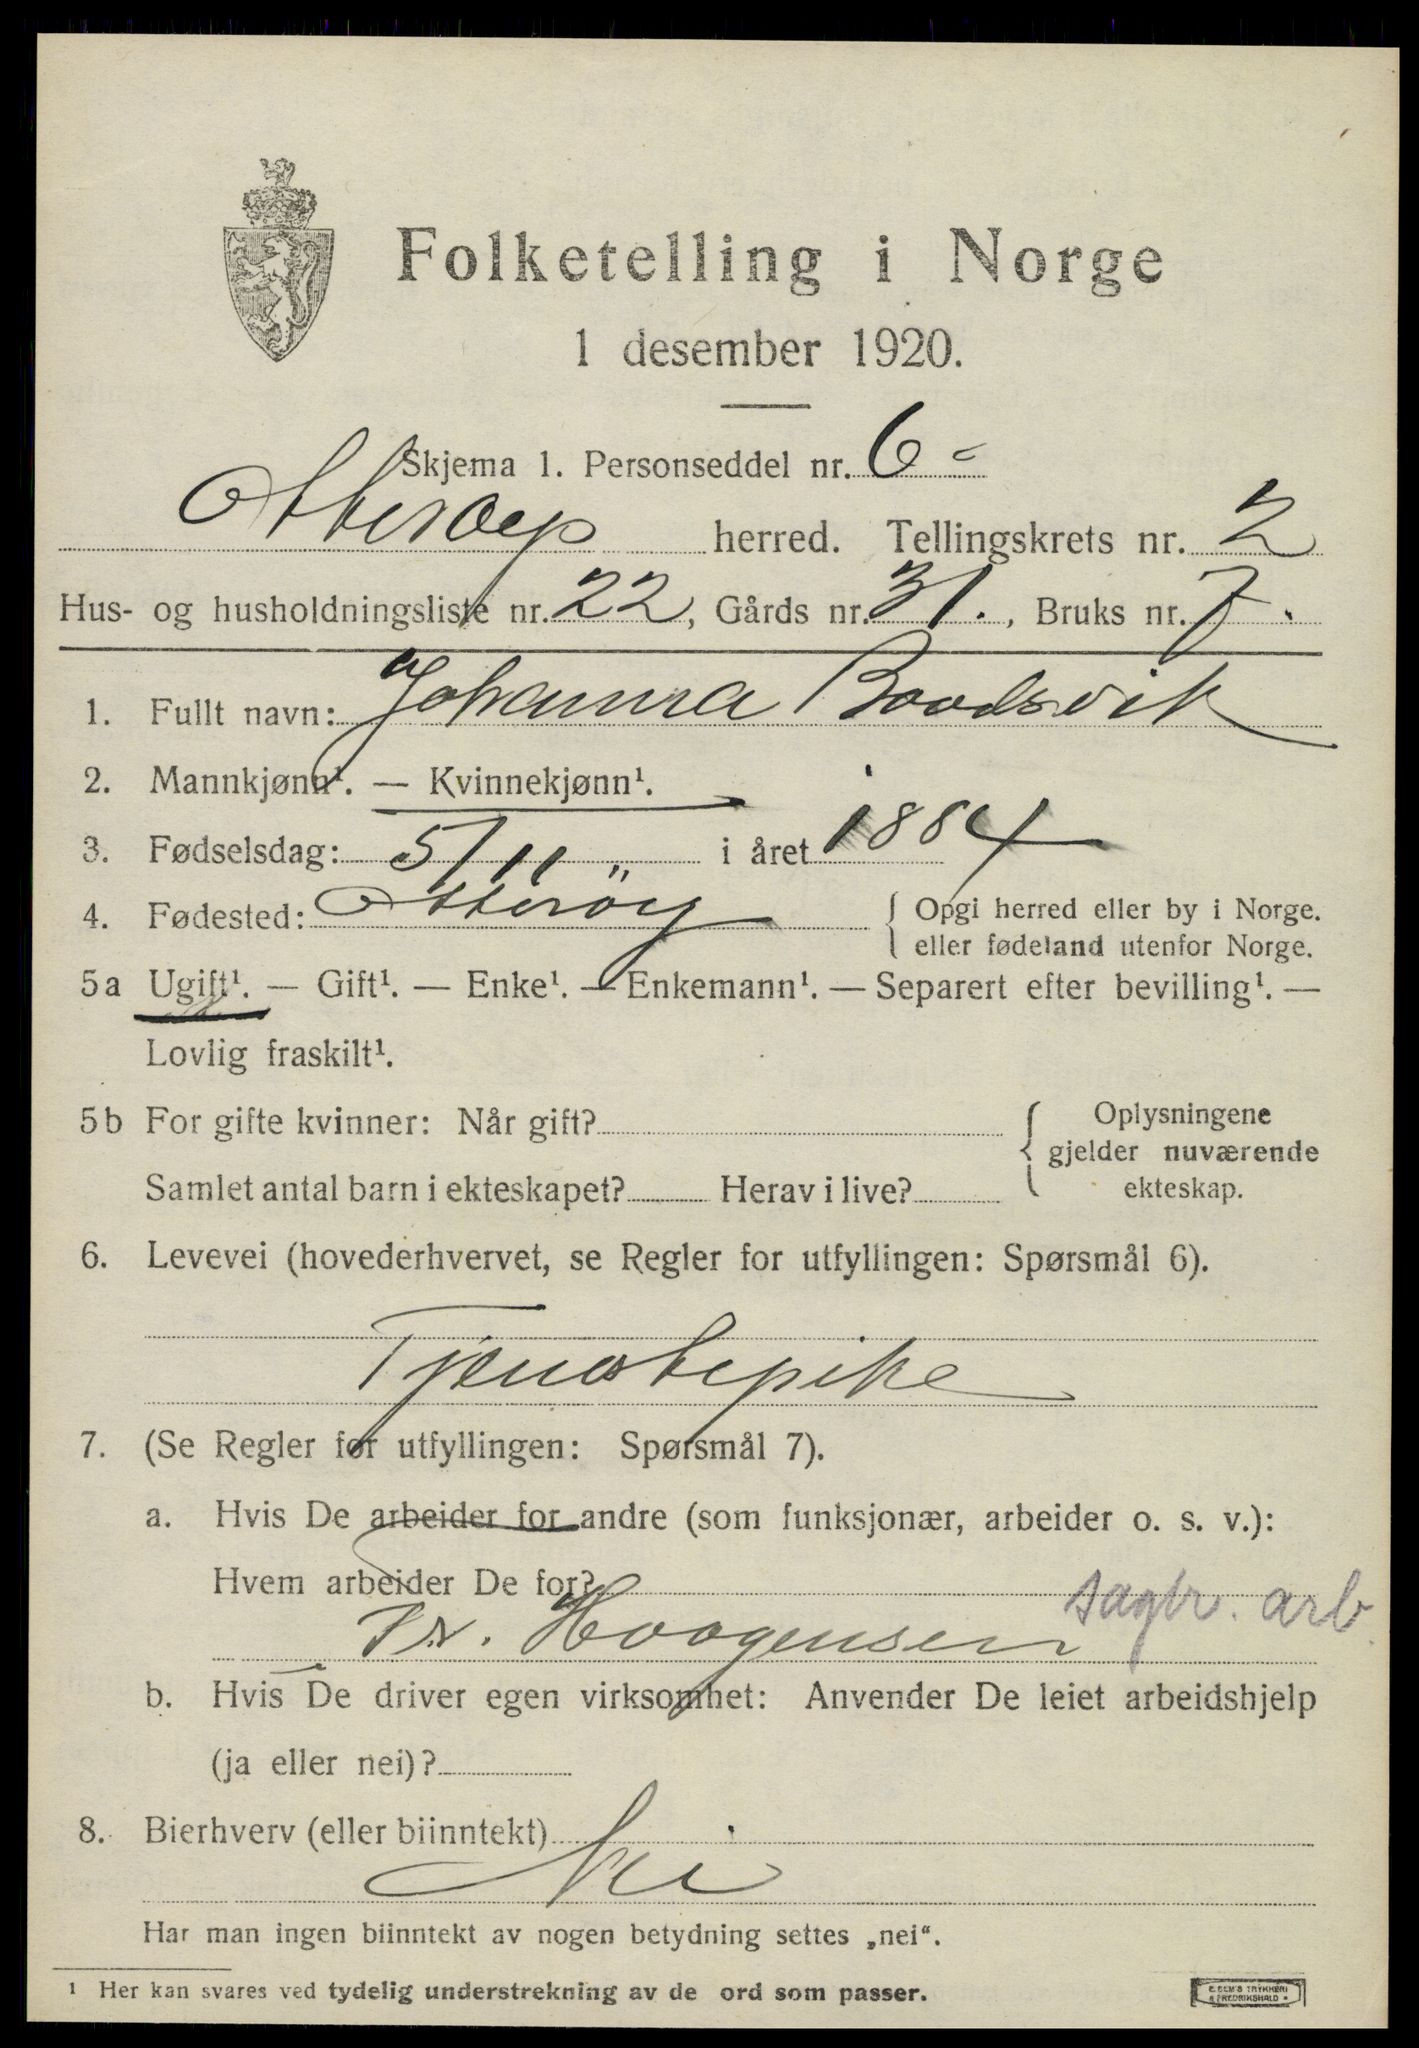 Folketelling i Norge
1 desember 1920.
Skjema 1. Personseddel nr. 6
Otterøy herred. Tellingskrets nr. 2
Hus- og husholdningsliste nr. 22, Gårds nr. 31., Bruks nr. 7.
1. Fullt navn: Johanna Boodsvik
2. Mannkjønn¹. — Kvinnekjønn¹.
3. Fødselsdag: 5/11 " i året 1884
4. Fødested: Otterøy { Opgi herred eller by i Norge.
eller fødeland utenfor Norge.
5a Ugift¹. — Gift¹. — Enke¹. — Enkemann¹. — Separert efter bevilling¹. —
Lovlig fraskilt¹.
5b For gifte kvinner: Når gift? { Oplysningene
gjelder nuværende
Samlet antal barn i ekteskapet? Herav i live? ekteskap.
6. Levevei (hovederhvervet, se Regler for utfyllingen: Spørsmål 6).
Tjenestepike
7. (Se Regler for utfyllingen: Spørsmål 7).
a. Hvis De arbeider for andre (som funksjonær, arbeider o. s. v.):
Hvem arbeider De for?
sagbr. arb.
Fr. Hoogensen
b. Hvis De driver egen virksomhet: Anvender De leiet arbeidshjelp
(ja eller nei)?
8. Bierhverv (eller biinntekt)
Nei
Har man ingen biinntekt av nogen betydning settes „nei“.
¹ Her kan svares ved tydelig understrekning av de ord som passer.
E. SEM'S TRYKKERI
FREDRIKSHALD